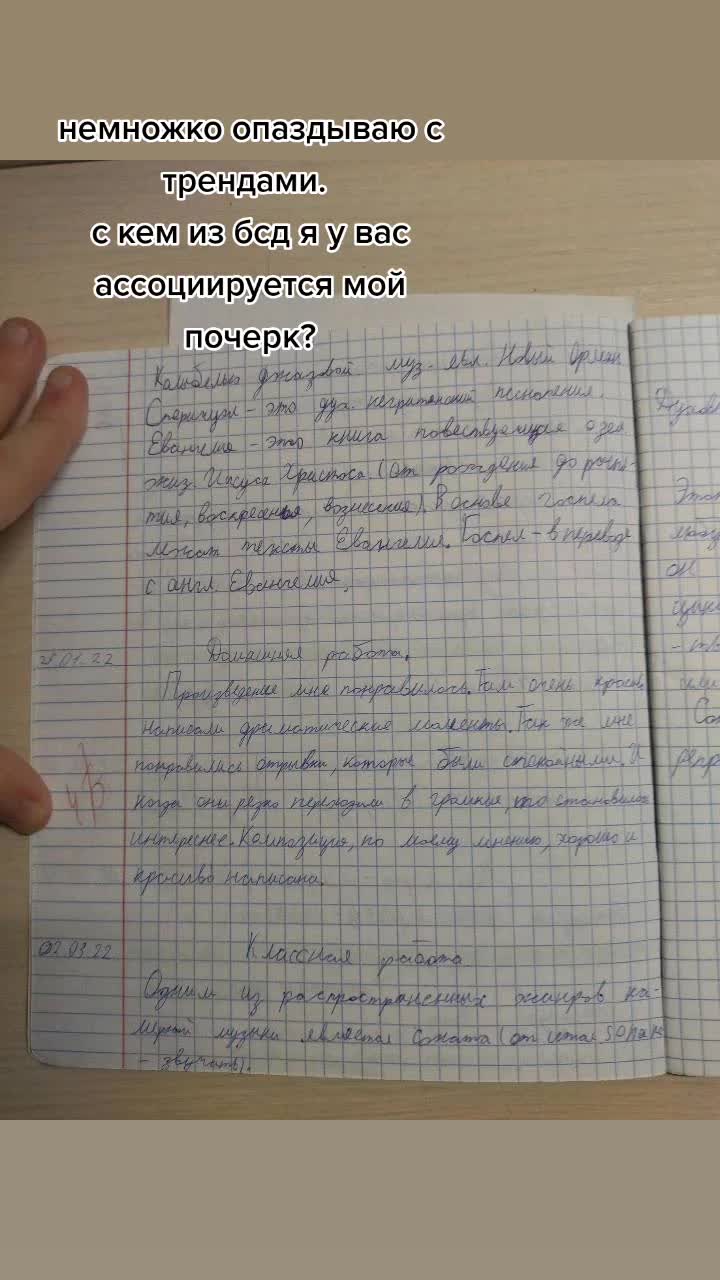 немножко опаздываю с
трендами.
с кем из бсд я у вас
ассоциируется мой
почерк?
Колыбелью джазовой муз. явл. Новый Орлеан
Спиричуэл - это дух. негритянский песнопения.
Евангелие - это книга повествующая о зем
жиз. Иисуса Христоса. (От рождения до распя-
тия, воскресенья, вознесения). В основе госпела
лежат тексты Евангелия. Госпел - в переводе
с англ. Евангелия.
Духов
Этот
он
.01.22 Домашняя работа.
Произведение мне понравилось. Там очень красиво
написали драматические моменты. Так же мне
понравились отрывки, которые были спокойными. И
когда они резко переходили в громкие, то становилось
интереснее. Композиция, по моему мнению, хорошо и
красиво написана.
02.03.22 Классная работа
Одним из распространенных жанров ка-
мерной музыки является Соната (от итал
- звучать).